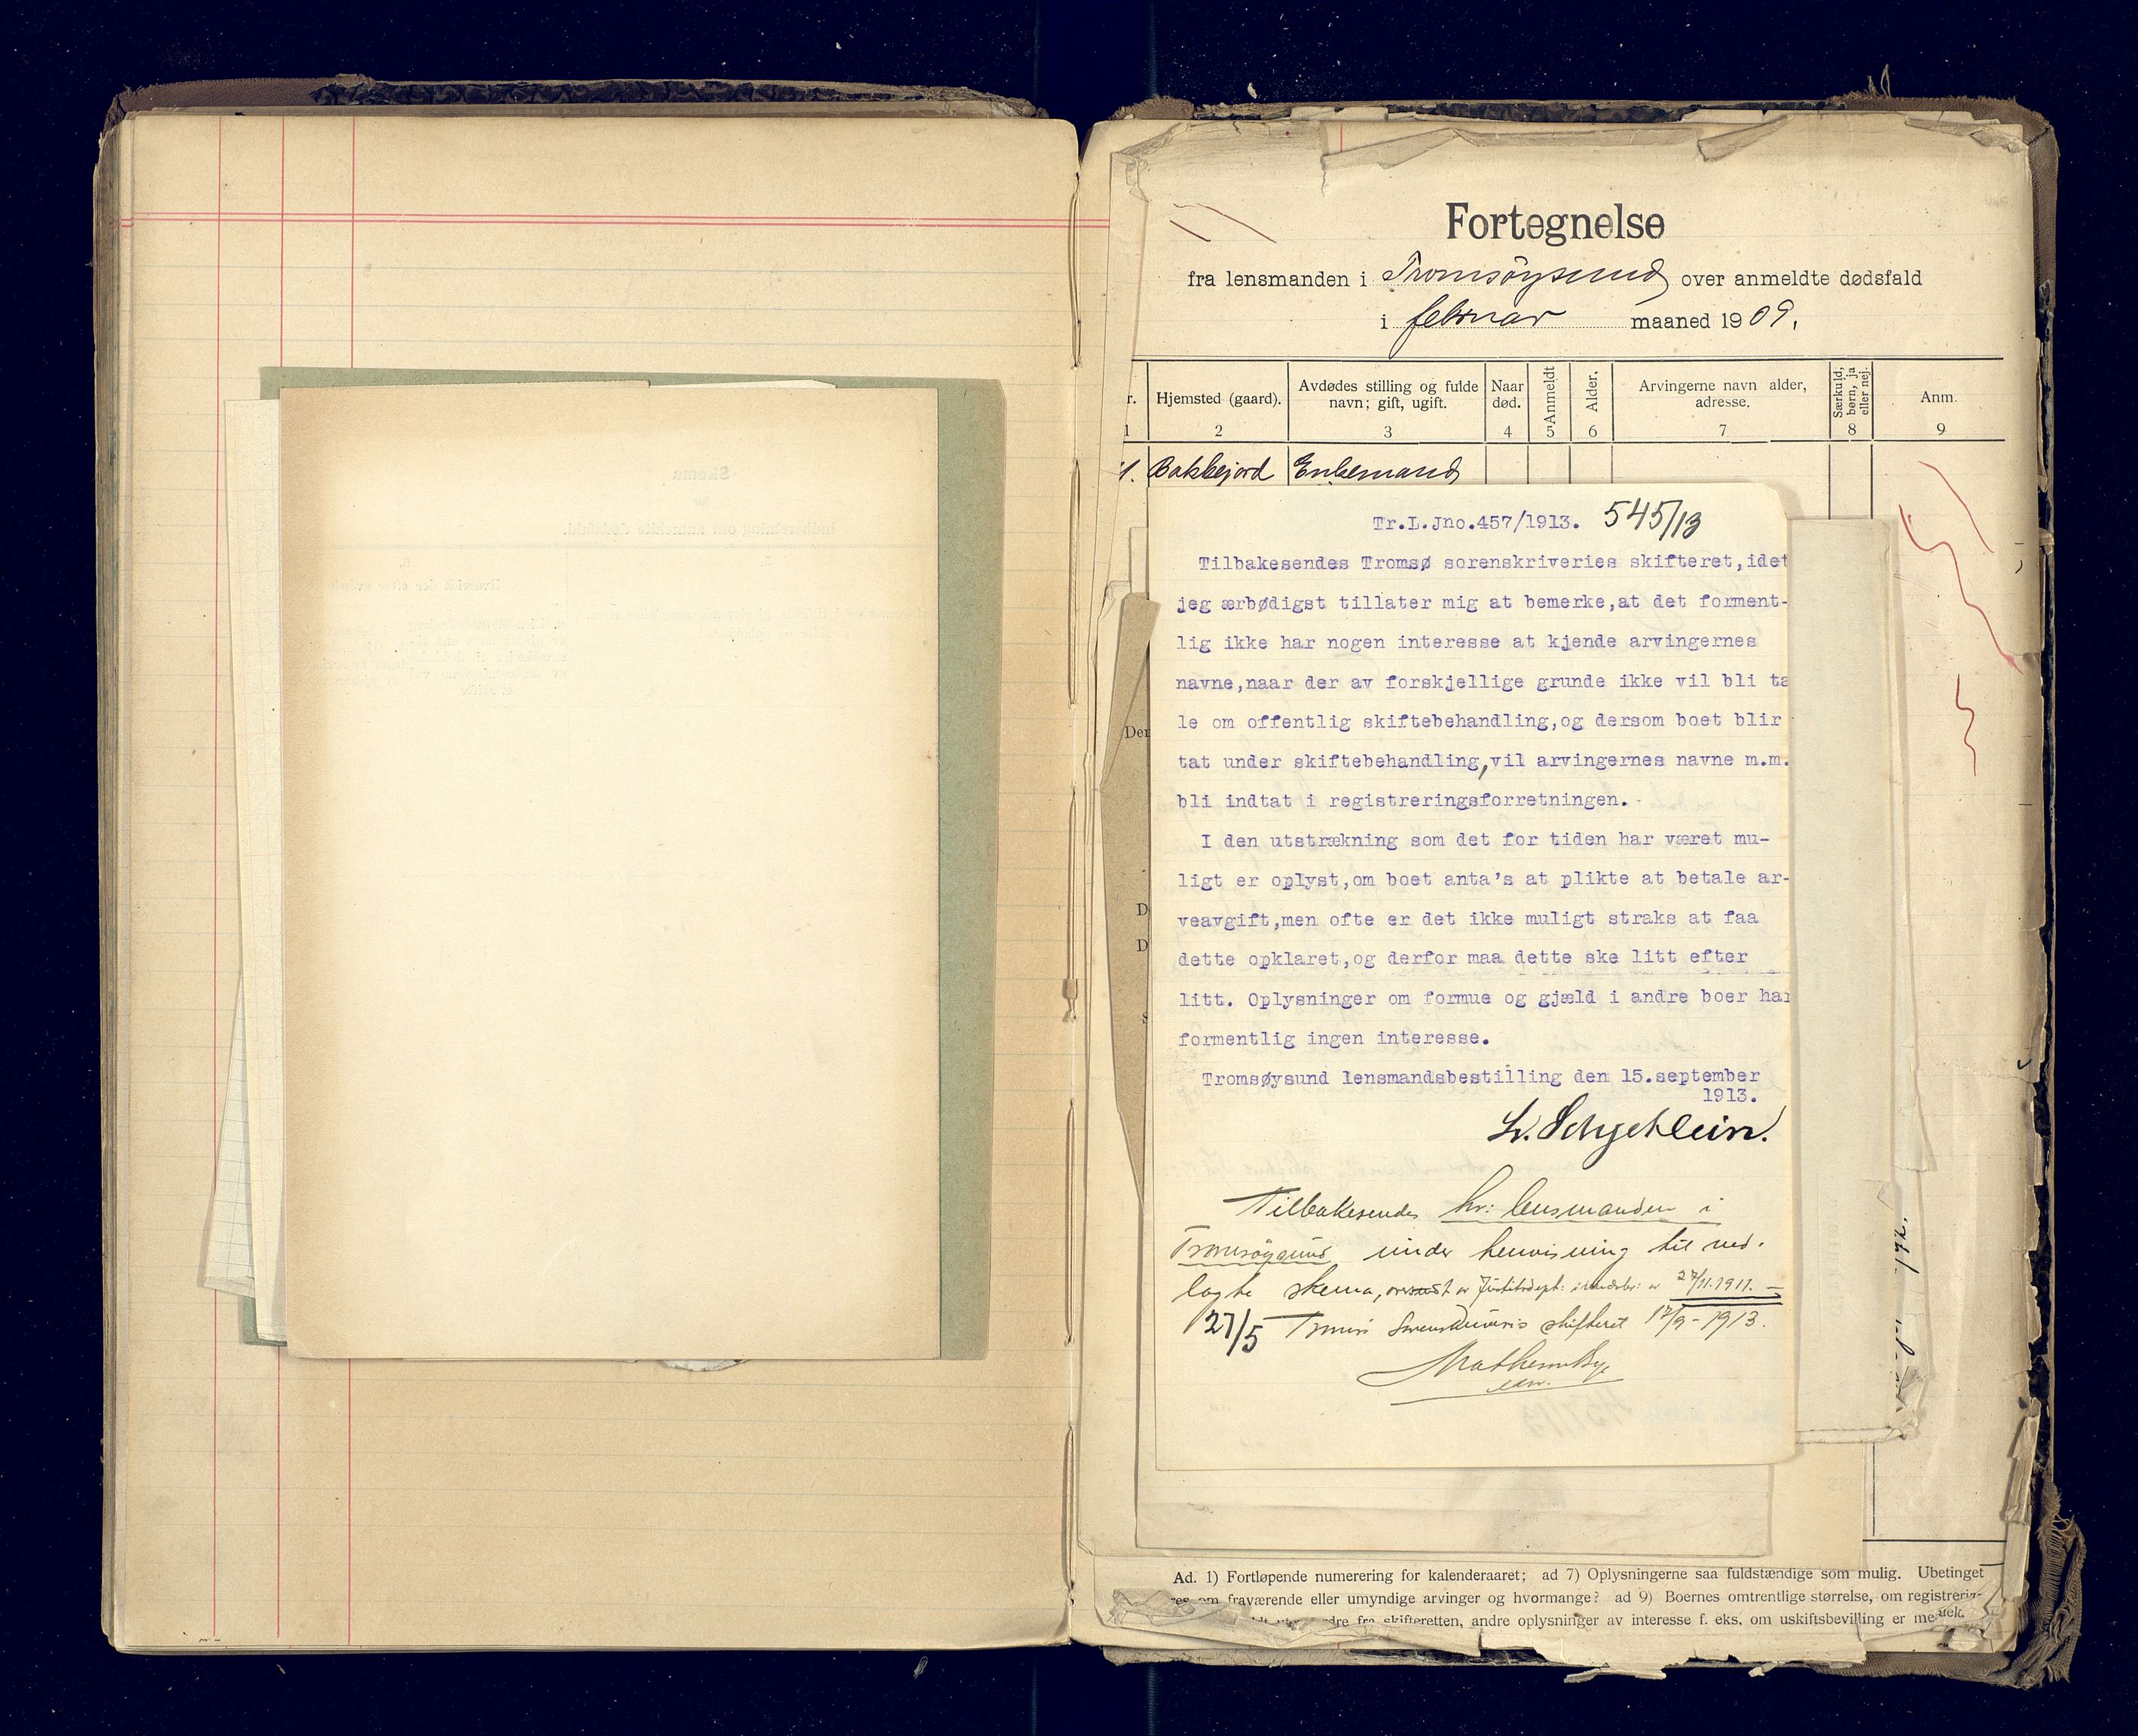 Fortegnelse
fra lensmanden i Tromsöysund over anmeldte dødsfald
i februar maaned 1909.
r. Hjemsted (gaard). Avdødes stilling og fulde navn; gift, ugift. Naar død. Anmeldt Alder. Arvingerne navn alder, adresse. Særkuld, børn, ja eller nej. Anm.
1 2 3 4 5 6 7 8 9
1. Bakkejord Enkemand
Tr.L.Jno.457/1913. 545/13
Tilbakesendes Tromsø sorenskriveries skifteret,idet
jeg ærbødigst tillater mig at bemerke,at det forment-
lig ikke har nogen interesse at kjende arvingernes
navne,naar der av forskjellige grunde ikke vil bli ta
le om offentlig skiftebehandling,og dersom boet blir
tat under skiftebehandling,vil arvingernes navne m.m.
bli indtat i registreringsforretningen.
I den utstrækning som det for tiden har været mu-
ligt er oplyst,om boet anta's at plikte at betale ar-
veavgift,men ofte er det ikke muligt straks at faa
dette opklaret,og derfor maa dette ske litt efter
litt. Oplysninger om formue og gjæld i andre boer har
formentlig ingen interesse.
Tromsøysund lensmandsbestilling den 15.september
1913.
Tilbakesendes hr: lensmanden i
Tromsöysund under henvisning til ved-
lagte skema, oversendt av Justitsdept: i 27/11.1911.
27/5 Tromsö Sorenskriveris skifteret 17/9-1913.
Der
D
D
Ad. 1) Fortløpende numerering for kalenderaaret; ad 7) Oplysningerne saa fuldstændige som mulig. Ubetinget
om fraværende eller umyndige arvinger og hvormange? ad 9) Boernes omtrentlige størrelse, om registrerig-
fra skifteretten, andre oplysninger av interesse f. eks. om uskiftsbevilling er
Skema
for
indberetning om anmeldte dødsfald.